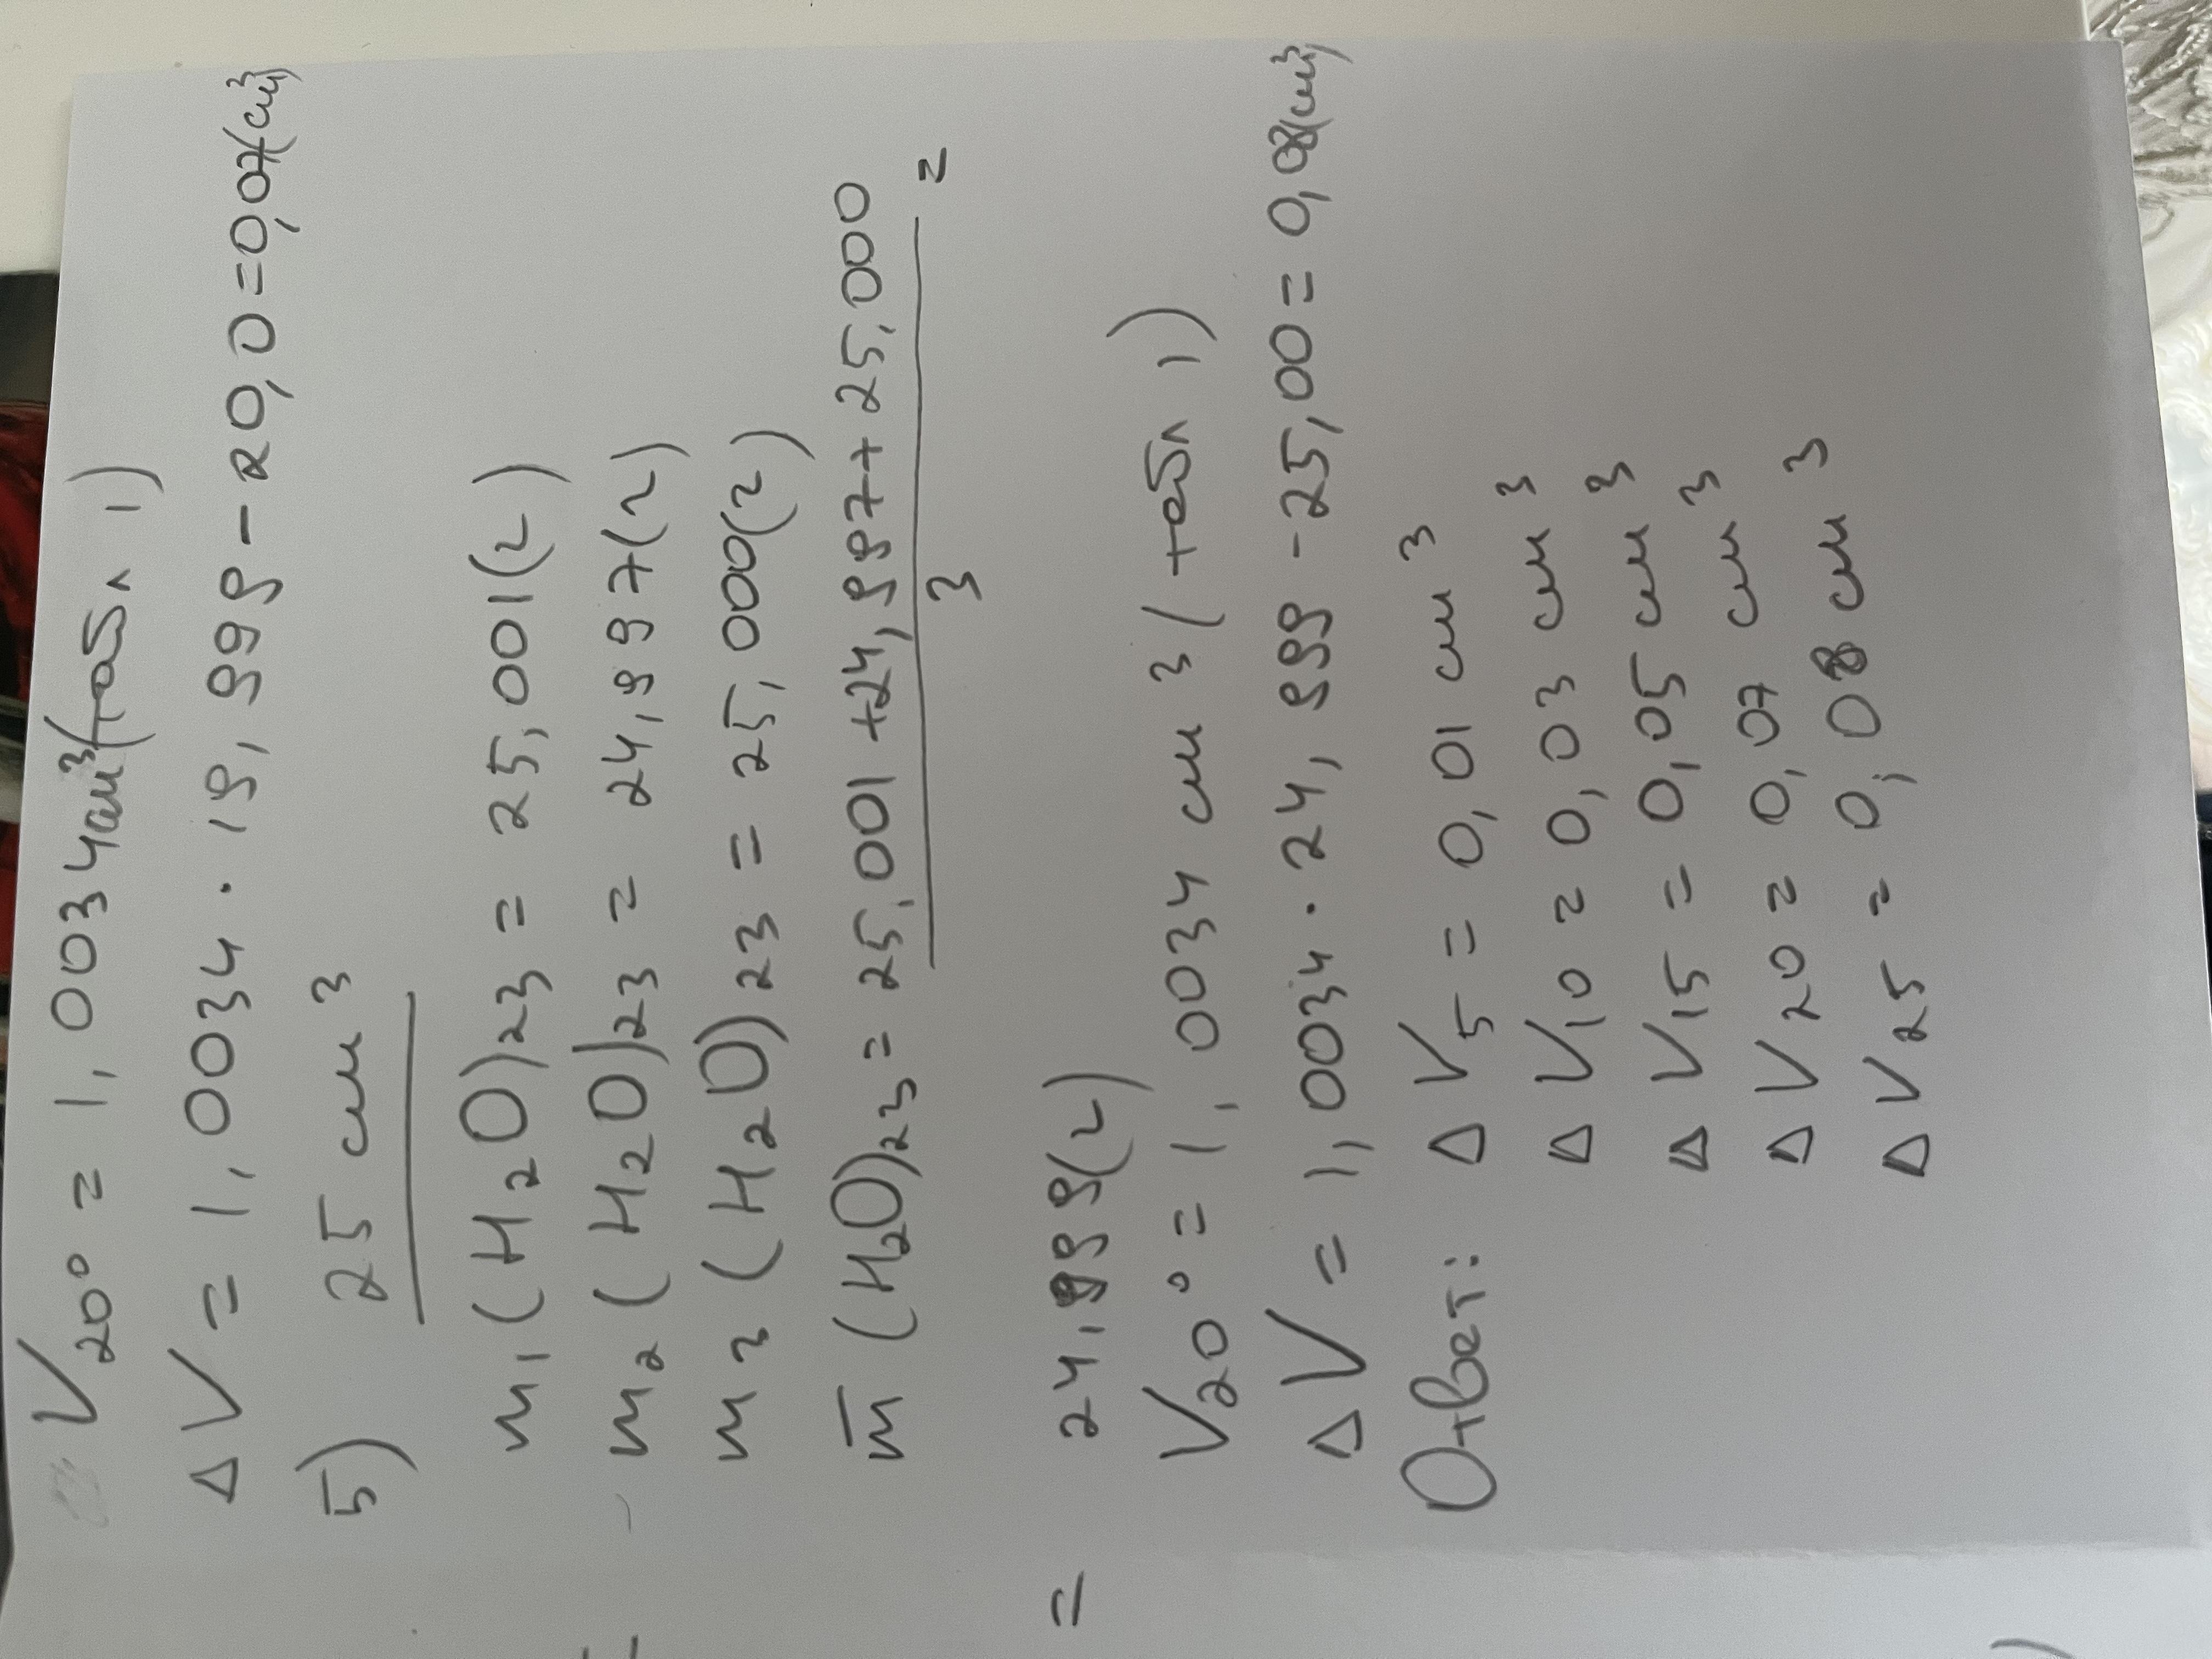 V₂₀° = 1,0034 см³ (табл 1)
ΔV = 1,0034 · 19,999 - 20,0 = 0,07 (см³)
5) 25 см³
m₁ (H₂O)₂₃ = 25,001 (г)
m₂ (H₂O)₂₃ = 24,997 (г)
m₃ (H₂O)₂₃ = 25,000 (г)
m̅ (H₂O)₂₃ = 25,001 + 24,997 + 25,000 =
3
= 24,999 (г)
V₂₀° = 1,0034 см³ (табл 1)
ΔV = 1,0034 · 24,999 - 25,00 = 0,08 (см³)
Ответ: ΔV₅ = 0,01 см³
ΔV₁₀ = 0,03 см³
ΔV₁₅ = 0,05 см³
ΔV₂₀ = 0,07 см³
ΔV₂₅ = 0,08 см³